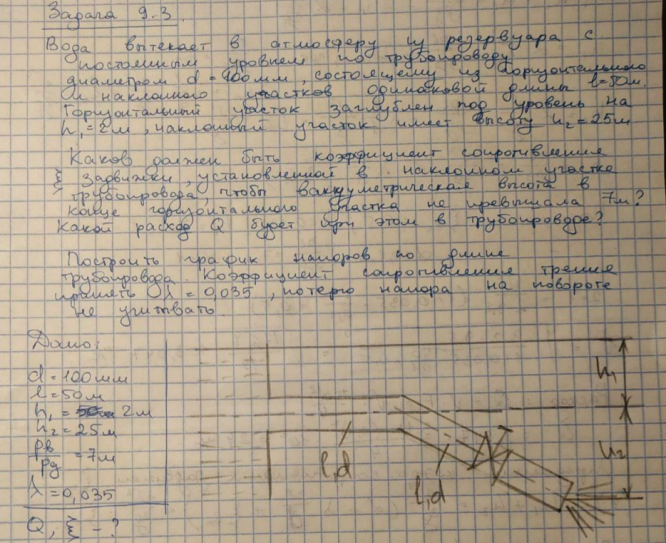 Задача 9.3.
Вода вытекает в атмосферу из резервуара с
постоянным уровнем по трубопроводу
диаметром d = 100мм, состоящему из горизонтального
и наклонного участков одинаковой длины l=50м.
Горизонтальный участок заглублен под уровень на
h₁=2м, наклонный участок имеет высоту h₂=25м
Каков должен быть коэффициент сопротивления
ξ задвижки, установленной в наклонном участке
трубопровода, чтобы вакууметрическая высота в
конце горизонтального участка не превышала 7м?
Какой расход Q будет при этом в трубопроводе?
Построить график напоров по длине
трубопровода. Коэффициент сопротивления трения
принять λ = 0,035, потерю напора на повороте
не учитывать.
Дано:
d = 100мм
l = 50м
h₁ = 2м
h₂ = 25м
pв/ρg = 7м
λ = 0,035
Q, ξ - ?
h₁
h₂
l,d
l,d